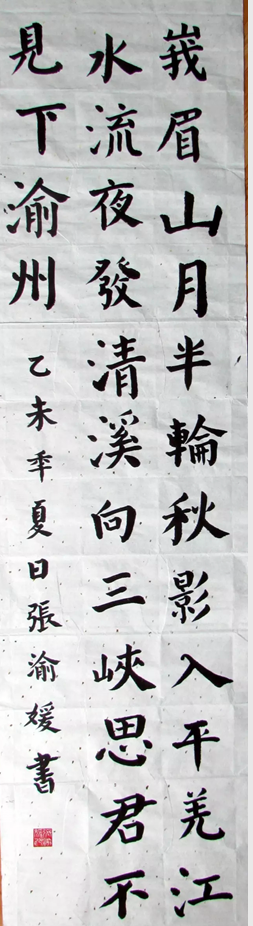 峩眉山月半輪秋影入平羌江
水流夜發清溪向三峽思君不
見下渝州
乙未年夏日張渝媛書